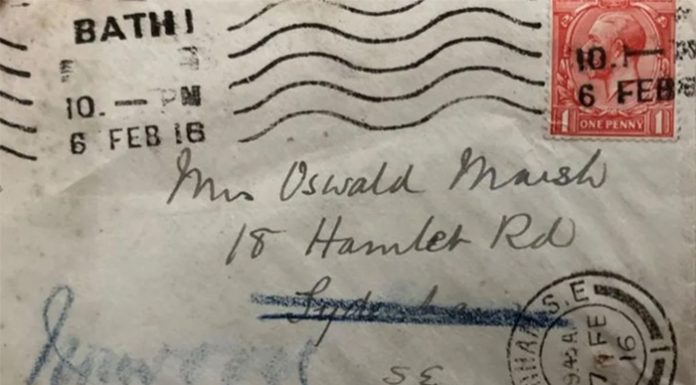 BATH
10. — PM
6 FEB 16
10. —
6 FEB
1 ONE PENNY 1
Mrs Oswald Marsh
18 Hamlet Rd
Sydenham
S.E
S.E
7 FE
16